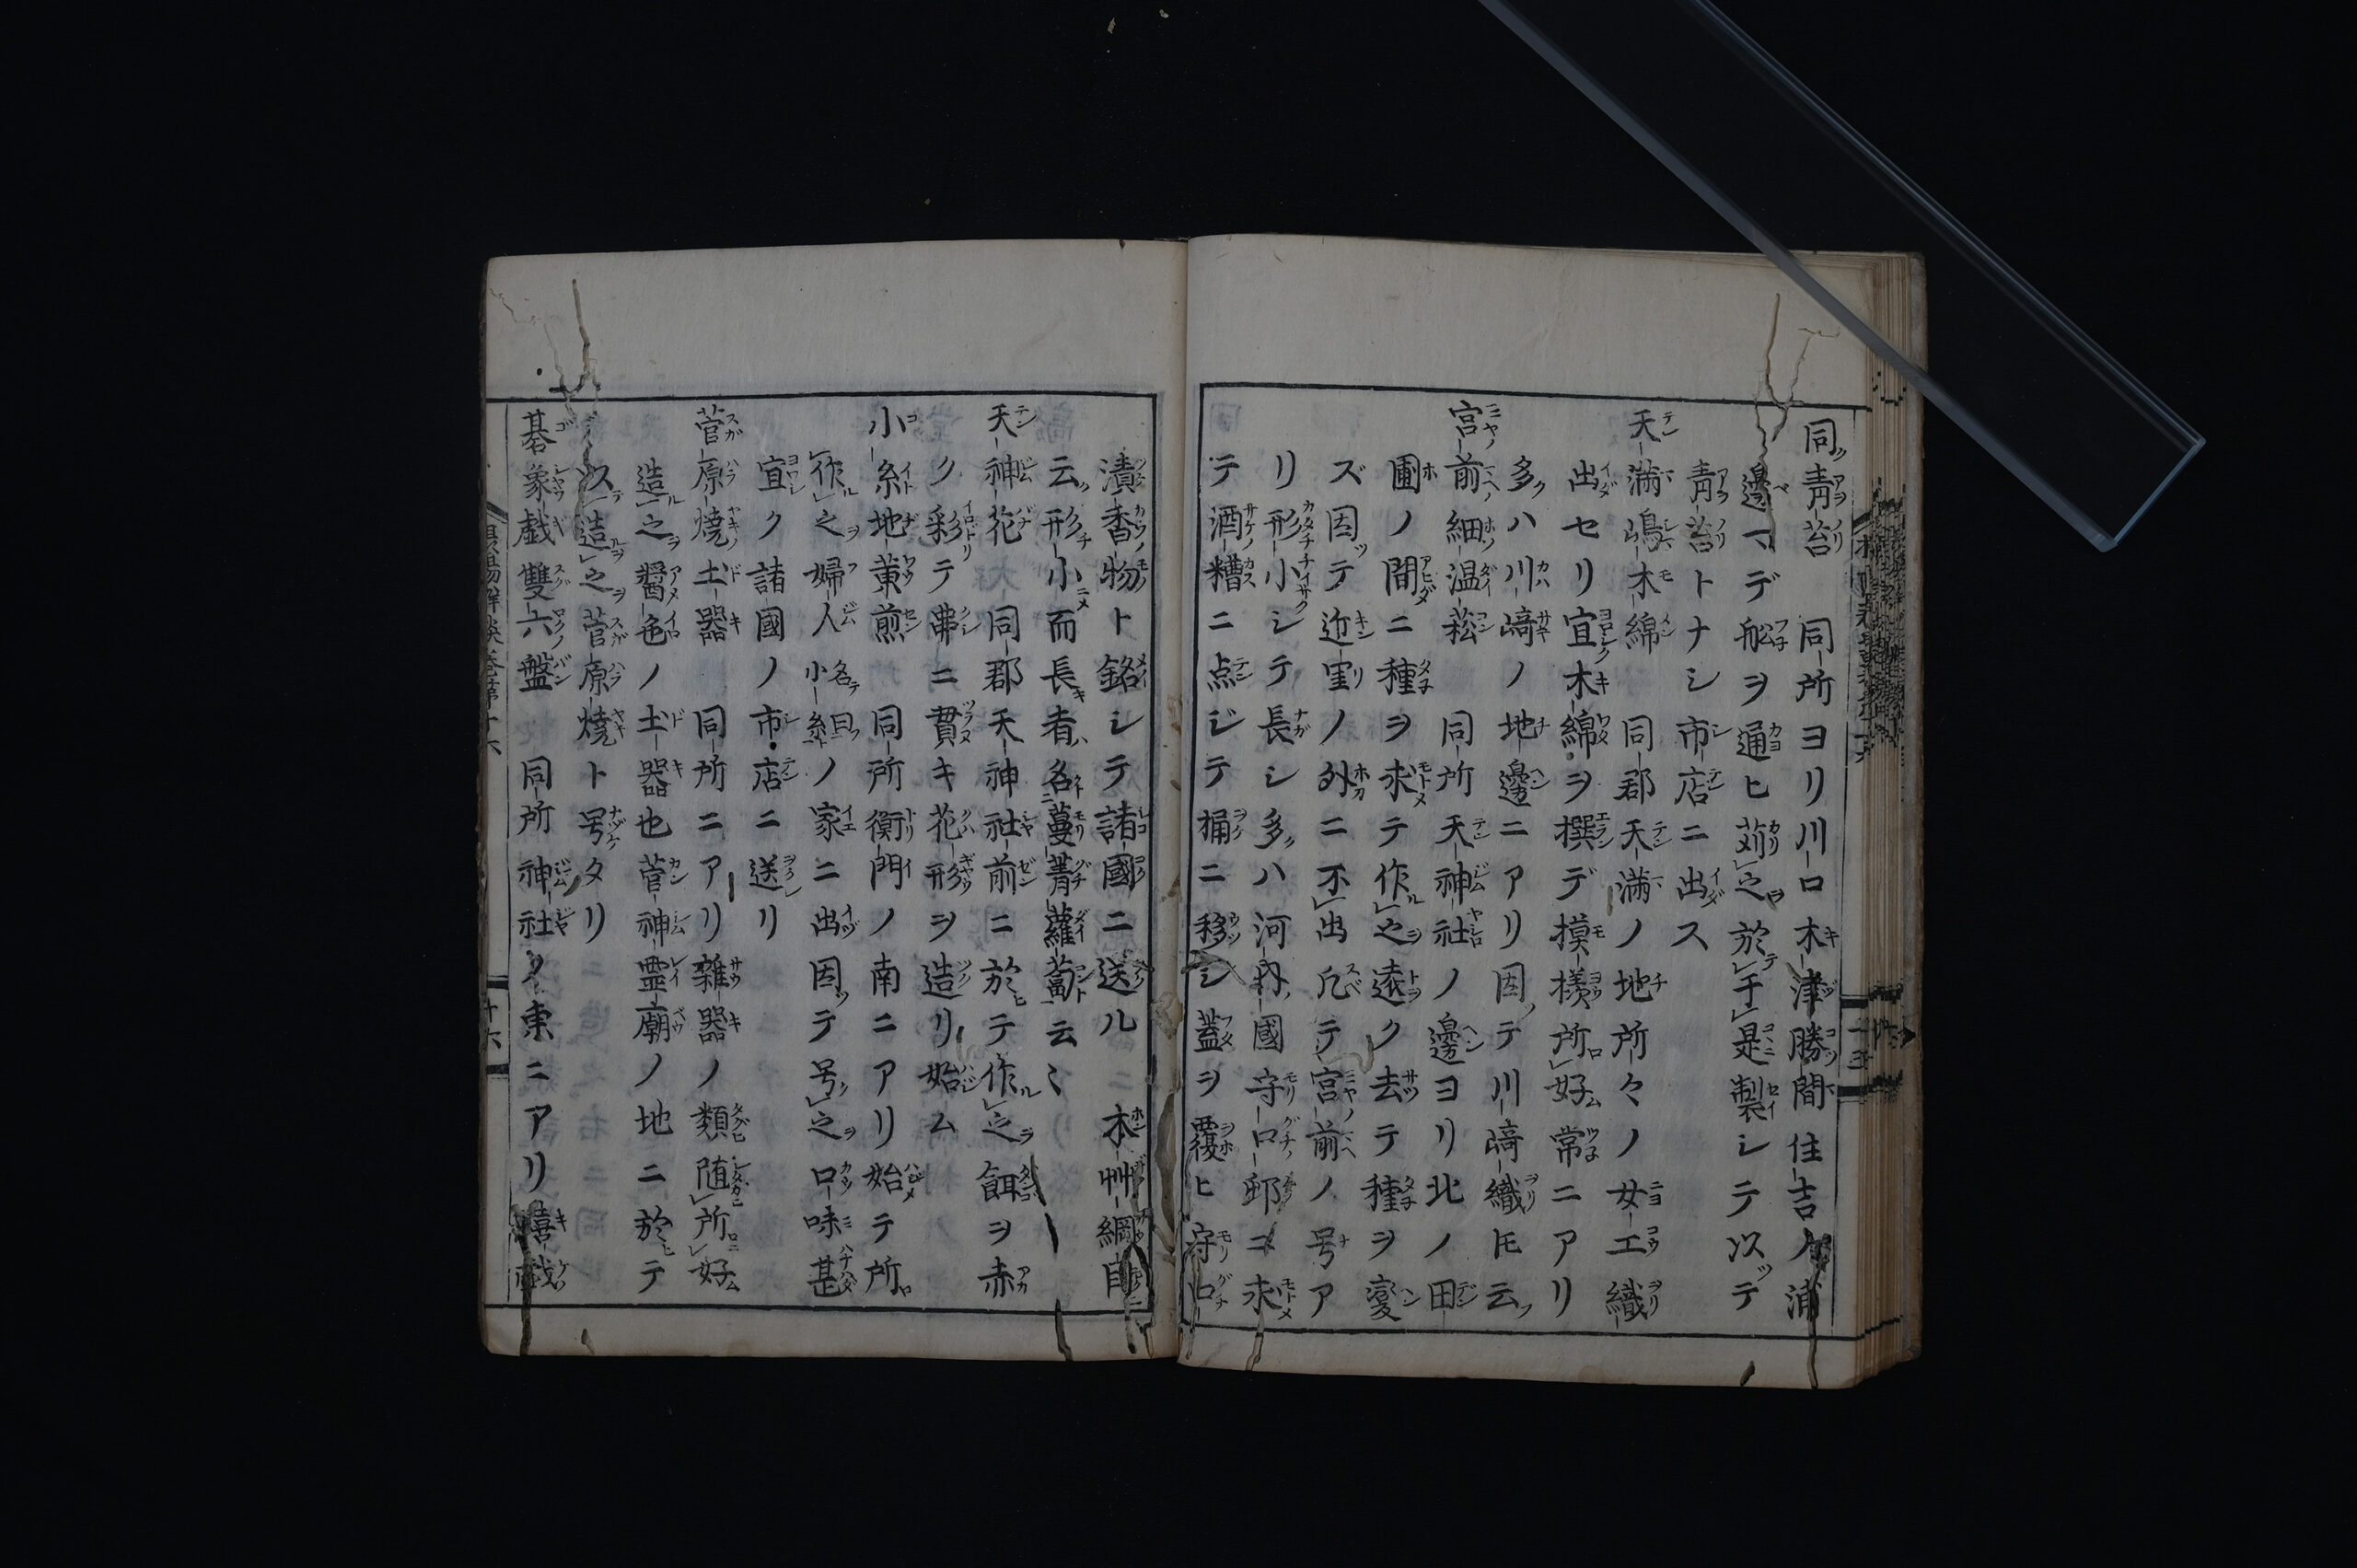 同青苔　同所ヨリ川口木津勝間住吉ノ浦
邊マデ舩ヲ通ヒ苅之於于是製シテ以テ
青苔トナシ市店ニ出ス
天満嶋木綿　同郡天満ノ地所々ノ女工織
出セリ宜木綿ヲ撰デ摸様所好常ニアリ
多ハ川﨑ノ地邊ニアリ因テ川﨑織ヒモ云
宮前細温菘　同所天神社ノ邊ヨリ北ノ田
圃ノ間ニ種ヲ求テ作之遠ク去テ種ヲ変
ズ因テ近里ノ外ニ不出凡テ宮前ノ号ア
リ形小シテ長シ多ハ河内國守口邨ニ求
テ酒糟ニ点ジテ桶ニ移シ蓋ヲ覆ヒ守口
漬香物ト銘シテ諸國ニ送ル　本艸綱目
云形小而長者名蔓菁蘿蔔云〻
天神花　同郡天神社前ニ於テ作之餌ヲ赤
ク彩テ串ニ貫キ花形ヲ造リ始ム
小糸地黄煎　同所衡門ノ南ニアリ始テ所
作之婦人名曰小糸ノ家ニ出因テ号之口味甚
宜ク諸國ノ市店ニ送リ
菅原燒土器　同所ニアリ雜器ノ類随所好
造之醤色ノ土器也菅神霊廟ノ地ニ於テ
以造之菅原燒ト号タリ
碁象戯雙六盤　同所神社ノ東ニアリ嬉戯
十六